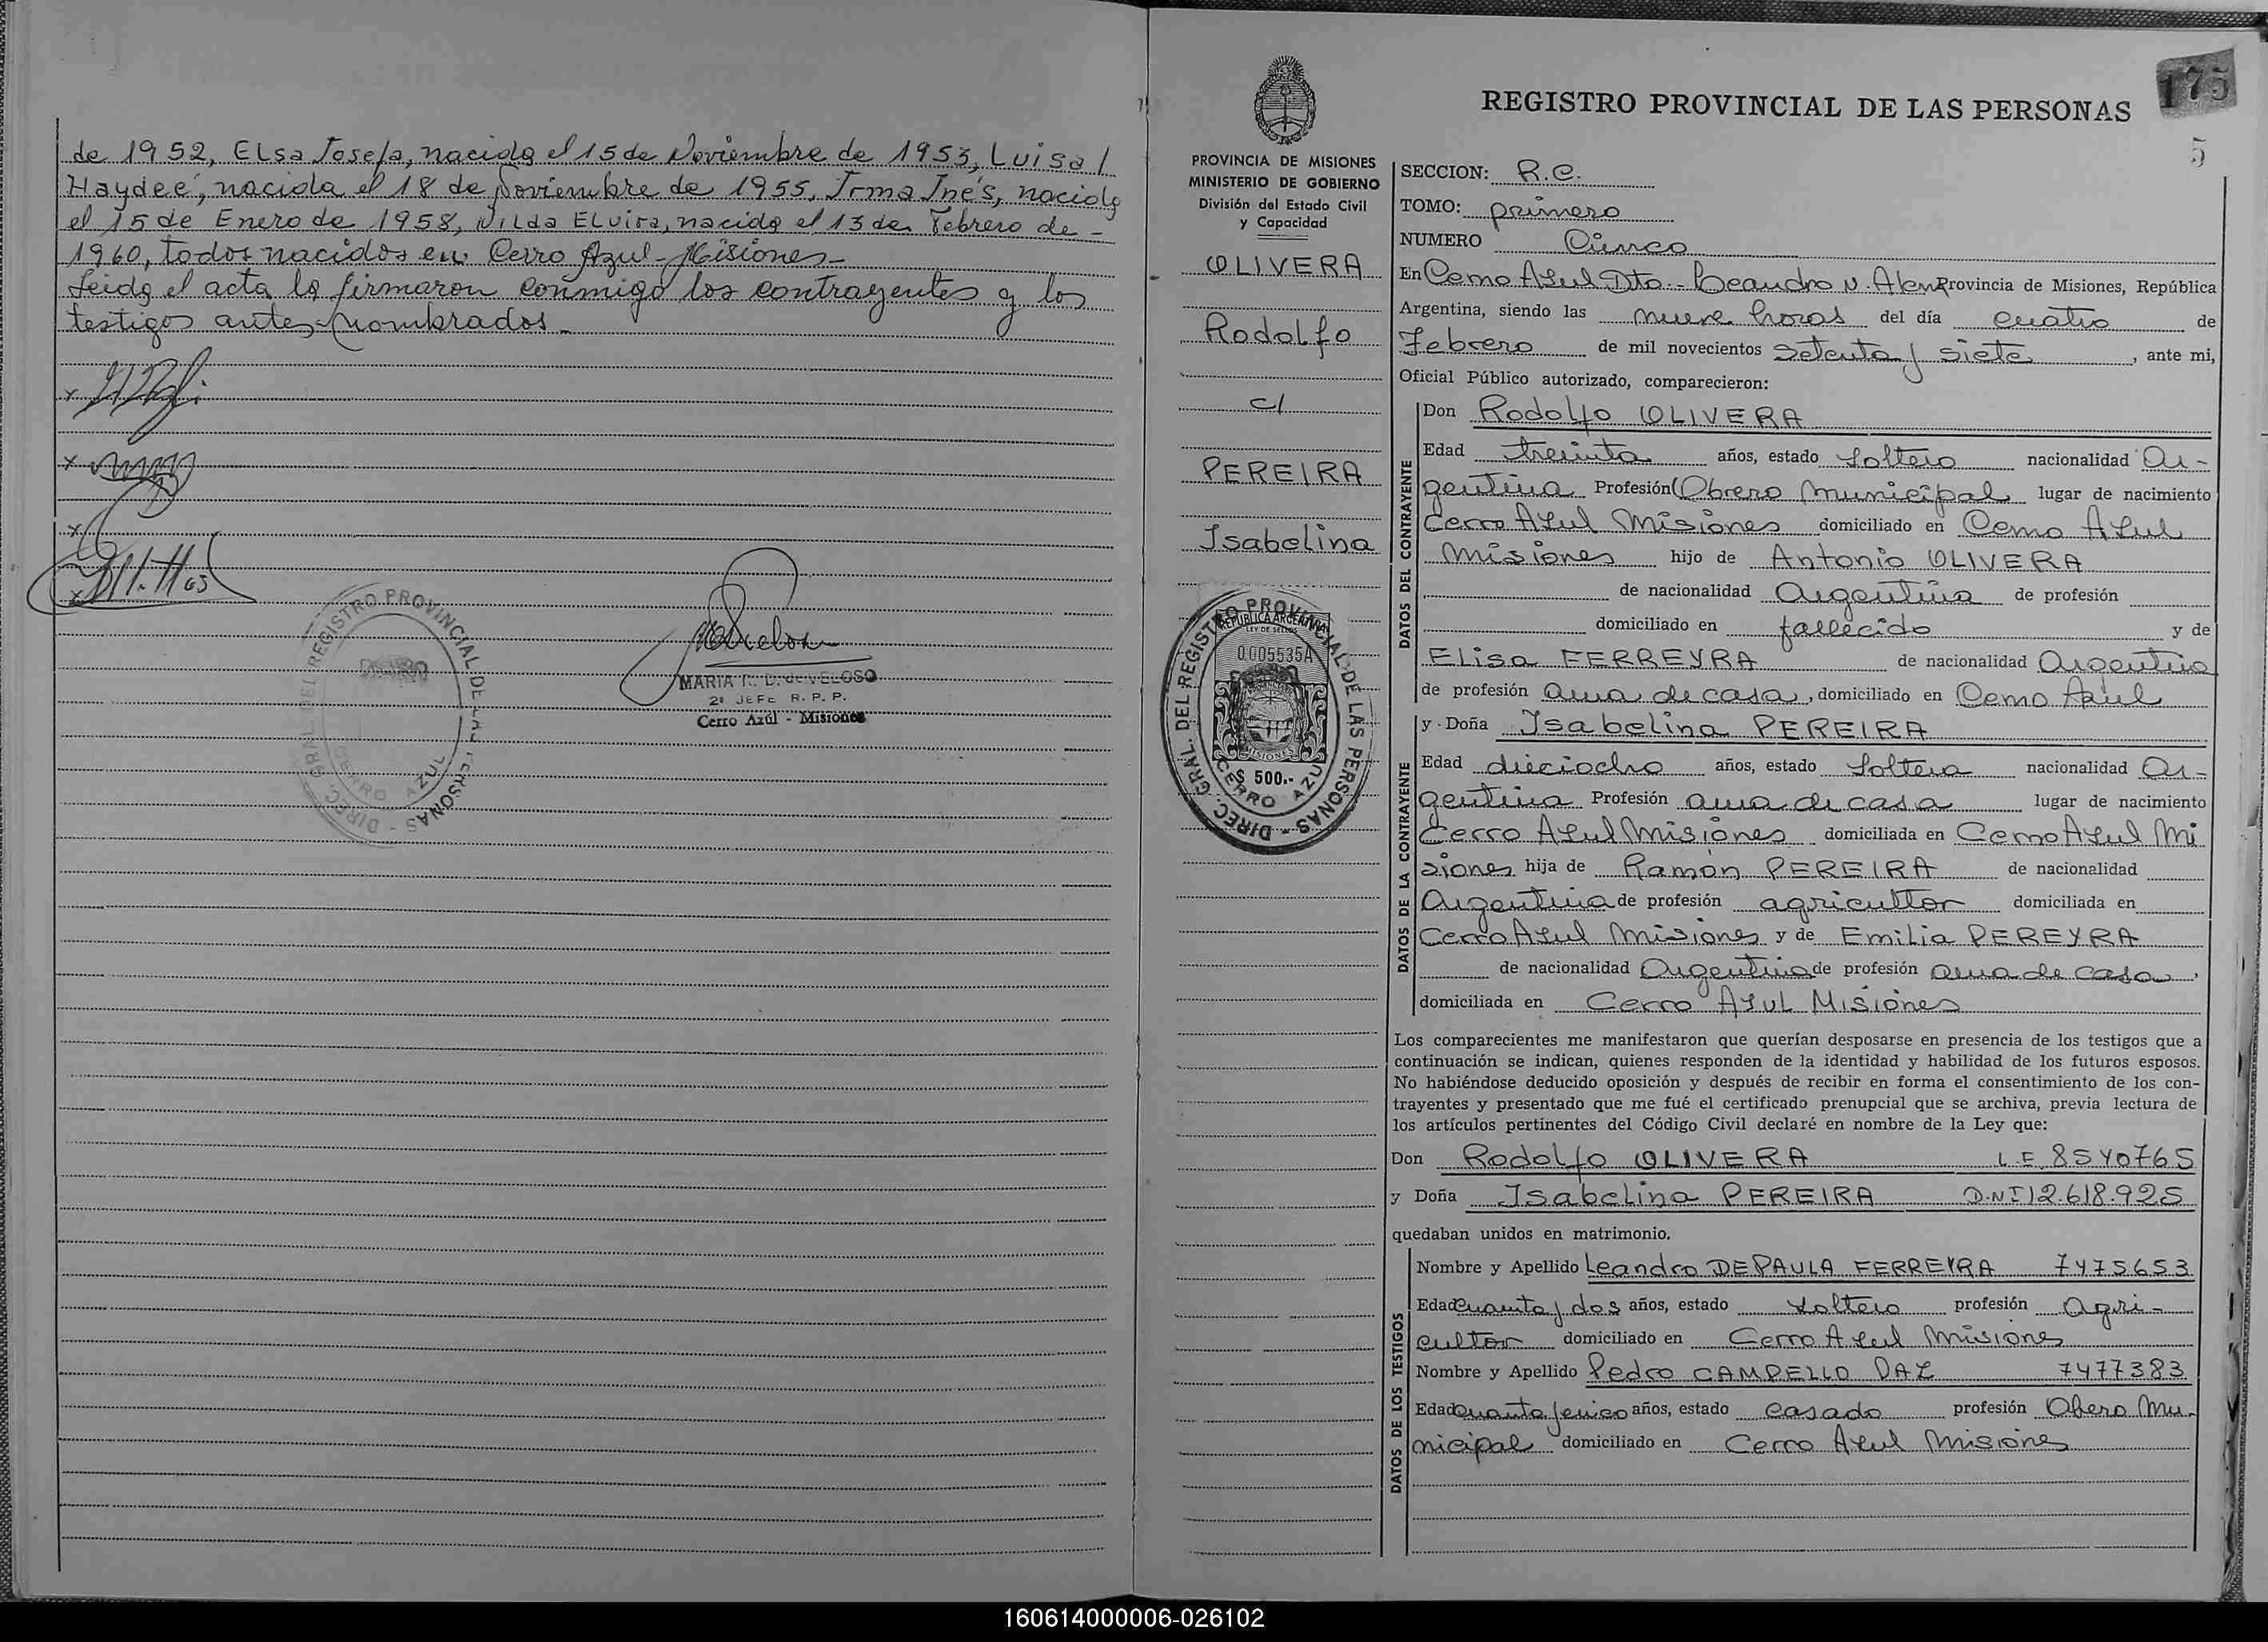 de 1952, Elsa Josefa, nacida el 15 de Noviembre de 1953, Luisa /
Haydeé, nacida el 18 de Noviembre de 1955, Irma Inés, nacida
el 15 de Enero de 1958, Nilda Elvira, nacida el 13 de Febrero de -
1960, todos nacidos en Cerro Azul - Misiones -
Leida el acta la firmaron conmigo los contrayentes y los
testigos antes nombrados -
DIREC. GRAL. DEL REGISTRO PROVINCIAL DE LAS PERSONAS -
CERRO AZUL
MARIA R. D. de VELOSO
2º JEFE R. P. P.
Cerro Azúl - Misiones
175
5
REGISTRO PROVINCIAL DE LAS PERSONAS
PROVINCIA DE MISIONES
MINISTERIO DE GOBIERNO
División del Estado Civil
y Capacidad
OLIVERA
Rodolfo
c/
PEREIRA
Isabelina
DIREC. GRAL. DEL REGISTRO PROVINCIAL DE LAS PERSONAS -
REPUBLICA ARGENTINA
LEY DE SELLOS
0005535A
MISIONES
$ 500.-
CERRO AZUL
SECCION: R.C.
TOMO: primero
NUMERO Cinco
En Cerro Azul Dto - Leandro N. Alem Provincia de Misiones, República
Argentina, siendo las nueve horas del día cuatro de
Febrero de mil novecientos setenta y siete, ante mi,
Oficial Público autorizado, comparecieron:
DATOS DEL CONTRAYENTE
Don Rodolfo OLIVERA
Edad treinta años, estado soltero nacionalidad Ar-
gentina Profesión Obrero Municipal lugar de nacimiento
Cerro Azul Misiones domiciliado en Cerro Azul
Misiones hijo de Antonio OLIVERA
de nacionalidad Argentina de profesión
domiciliado en fallecido y de
Elisa FERREYRA de nacionalidad Argentina
de profesión ama de casa, domiciliado en Cerro Azul
DATOS DE LA CONTRAYENTE
y Doña Isabelina PEREIRA
Edad dieciocho años, estado soltera nacionalidad Ar-
gentina Profesión ama de casa lugar de nacimiento
Cerro Azul Misiones domiciliada en Cerro Azul Mi
siones hija de Ramón PEREIRA de nacionalidad
Argentina de profesión agricultor domiciliada en
Cerro Azul Misiones y de Emilia PEREYRA
de nacionalidad Argentina de profesión ama de casa,
domiciliada en Cerro Azul Misiones
Los comparecientes me manifestaron que querían desposarse en presencia de los testigos que a
continuación se indican, quienes responden de la identidad y habilidad de los futuros esposos.
No habiéndose deducido oposición y después de recibir en forma el consentimiento de los con-
trayentes y presentado que me fué el certificado prenupcial que se archiva, previa lectura de
los artículos pertinentes del Código Civil declaré en nombre de la Ley que:
Don Rodolfo OLIVERA L.E. 8540765
y Doña Isabelina PEREIRA D.N.I 12.618.925
quedaban unidos en matrimonio.
DATOS DE LOS TESTIGOS
Nombre y Apellido Leandro DEPAULA FERREYRA 7475653
Edad cuarenta y dos años, estado soltero profesión Agri-
cultor domiciliado en Cerro Azul Misiones
Nombre y Apellido Pedro CAMPELLO DAZ 7477383
Edad cuarenta y cinco años, estado casado profesión Obero Mu-
nicipal domiciliado en Cerro Azul Misiones
160614000006-026102